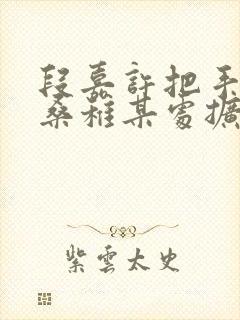 段嘉許把手
桑稚某處擴
紫雲太史